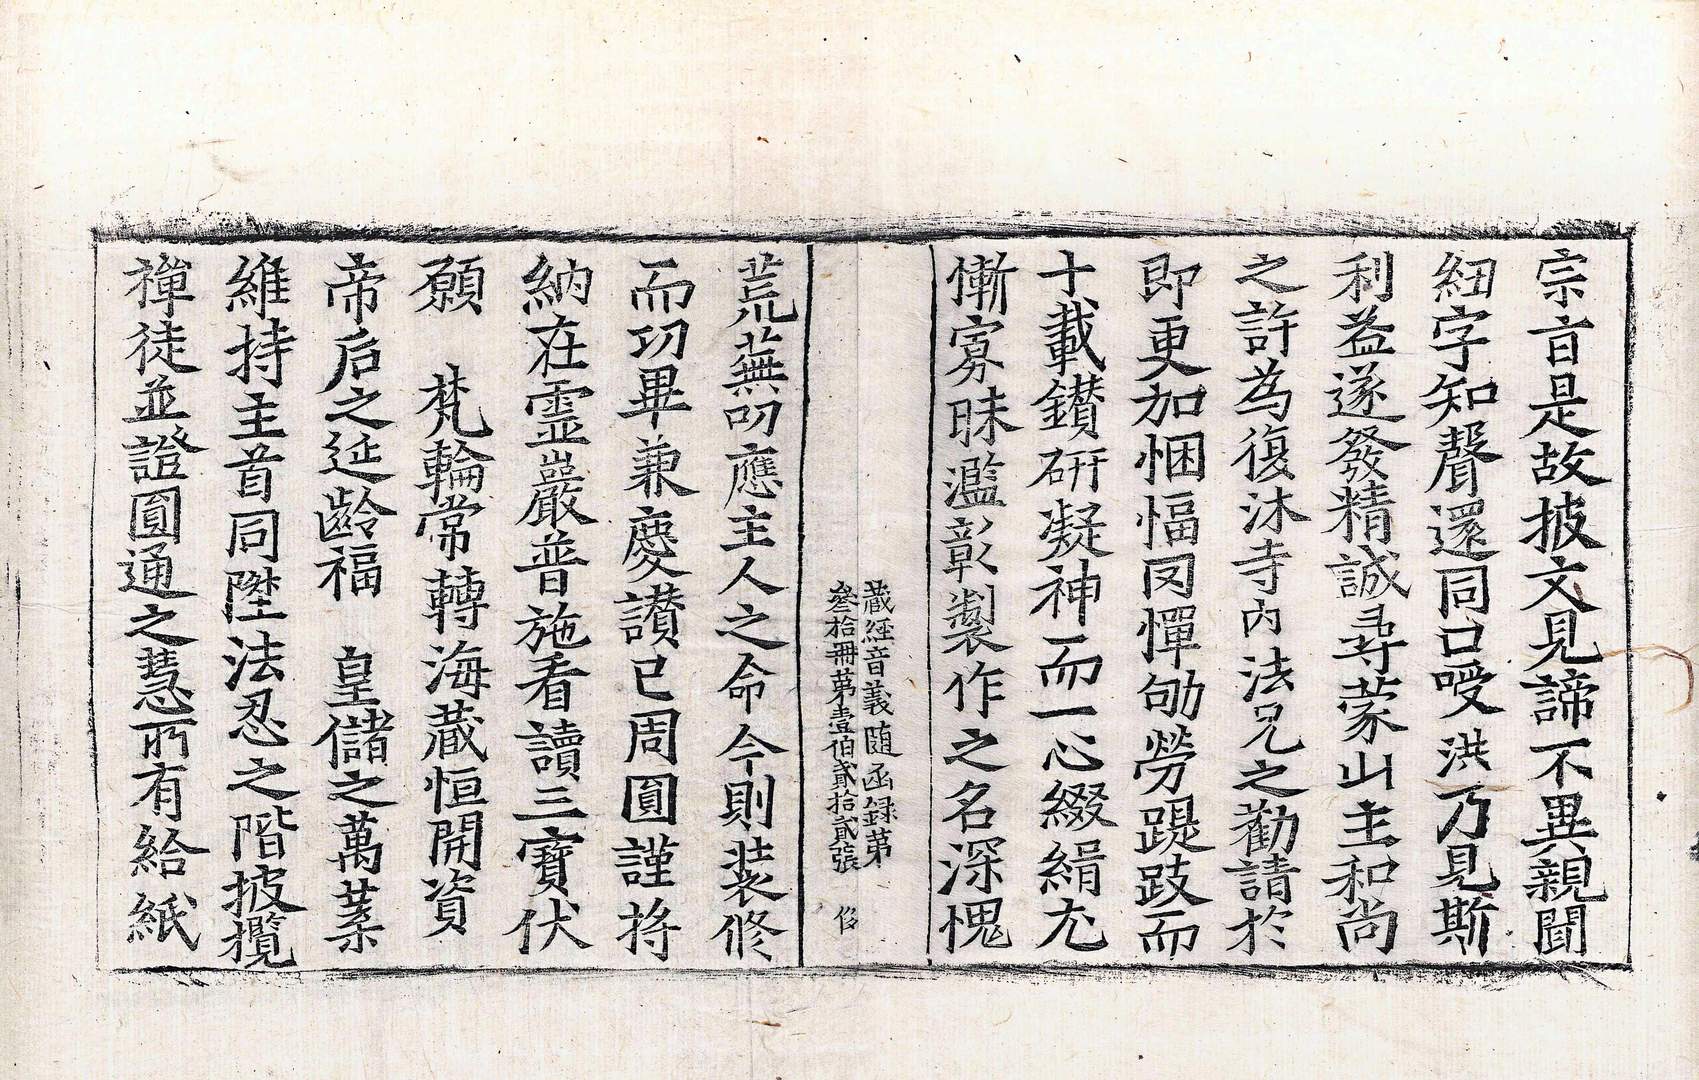 宗盲是故披文見諦不異親聞
紐字知聲還同口嗳洪乃見斯
利益遂發精誠尋蒙山主和尚
之許為復沐寺內法兄之勸請於
即更加悃愊罔憚劬勞踶跂而
十載鑚研凝神而一心綴緝尤
慚寡昧濫彰製作之名深愧
藏經音義随函録第
叄拾冊第壹伯貳拾貳張 俗
荒蕪叨應主人之命今則装修
而功畢兼慶讃已周圓謹將
納在靈巖普施看讀三寶伏
願 梵輪常轉海藏恒開資
帝后之延齡福 皇儲之萬葉
維持主首同陞法忍之階披攬
禅徒並證圓通之慧所有給紙